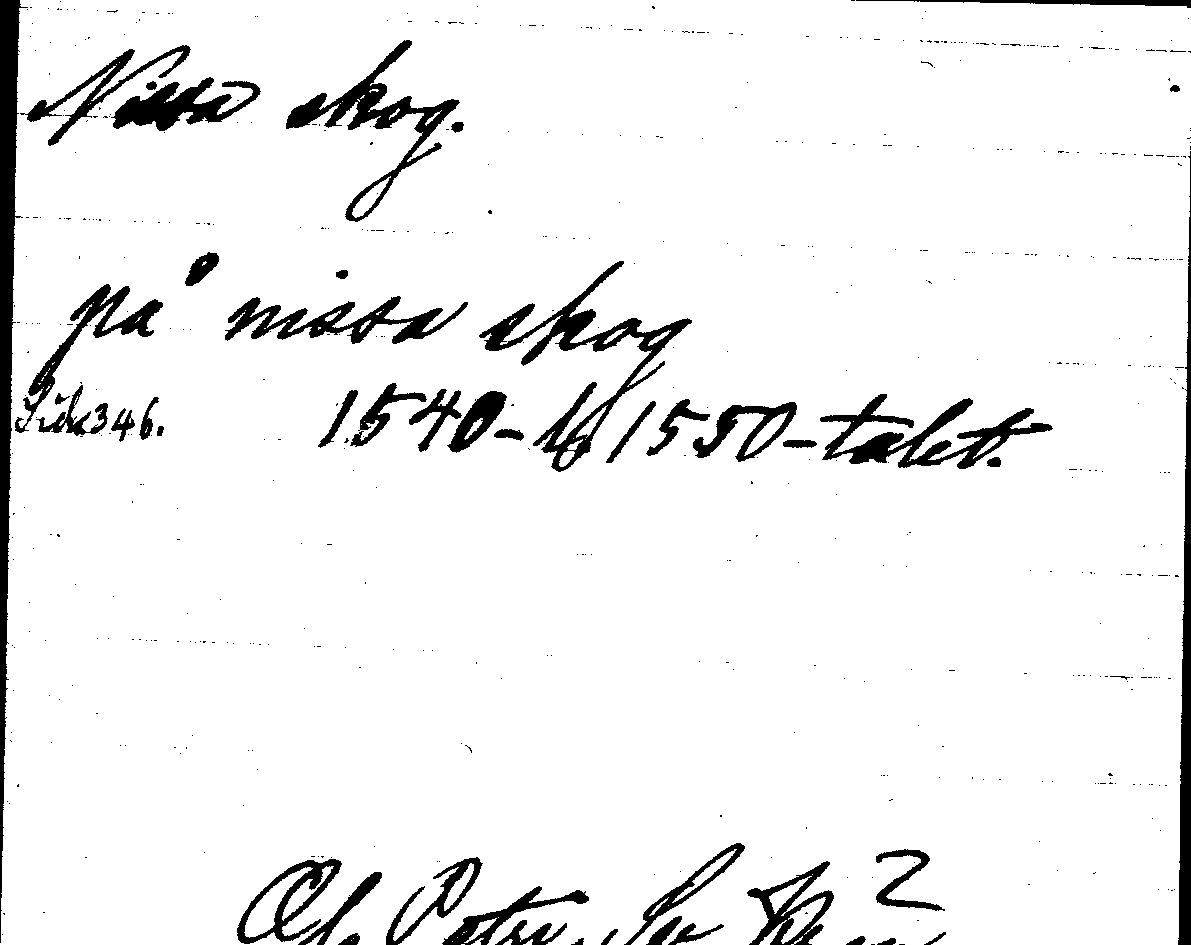 Nissa skog.
på nissa skog
Sid. 346. 1540- 1550-talet.
Petri 2